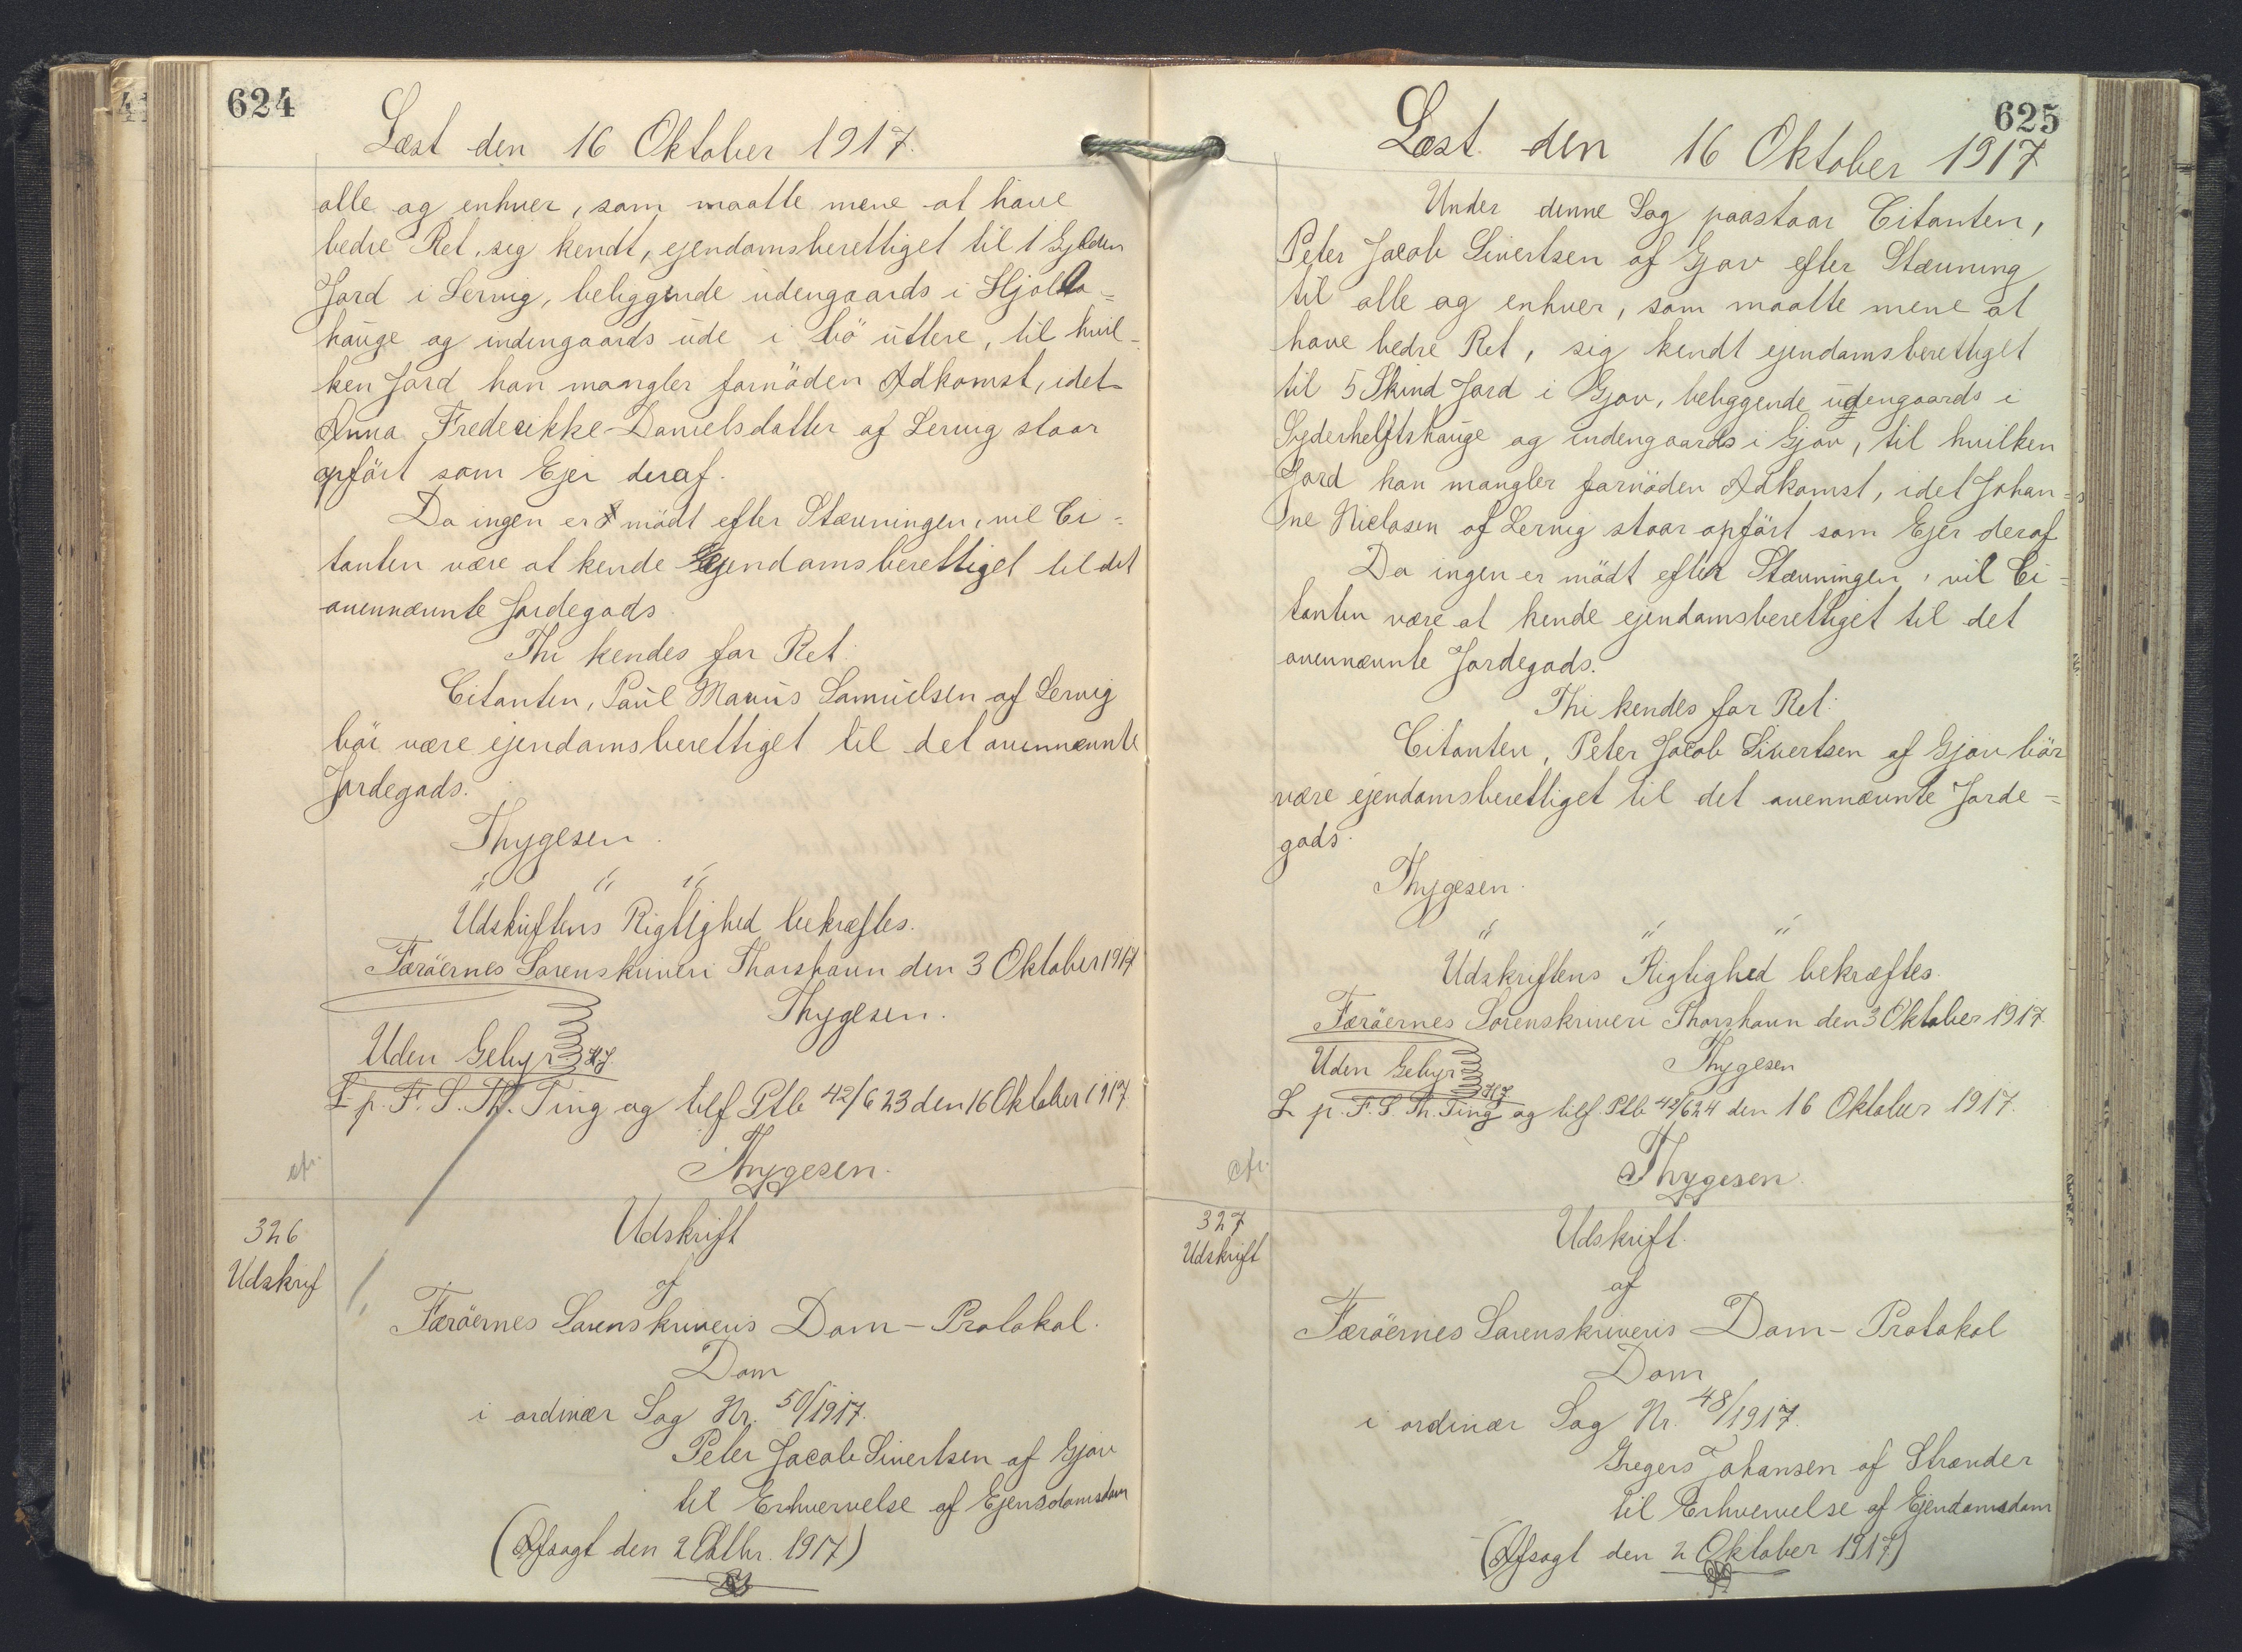 624
Læst den 16 Oktober 1917.
alle og enhver, som maatte mene at have
bedre Ret, sig kendt, ejendomsberettiget til 1 Gylden
Jord i Lervig, beliggende udengaards i Hjolla=
hauge og indengaards ude i bö uttere, til hvil-
ken Jord han mangler fornöden Adkomst, idet
Anna Frederikke Danielsdatter af Lervig staar
opfört som Ejer deraf.
Da ingen er mödt efter Stævningen, vil Ci=
tanten være at kende Ejendomsberettiget til det
ovennævnte Jordegods
Thi kendes for Ret:
Citanten, Paul Marius Samuelsen af Lervig
bör være ejendomsberettiget til det ovennævnte
Jordegods.
Thygesen.
" " "
Udskriftens Rigtighed bekræftes.
Færöernes Sorenskriveri Thorshavn den 3 Oktober 1917
Thygesen.
Uden Gebyr
L p. F. S. Th. Ting og tilf Ptb 42/623 den 16 Oktober 1917.
Thygesen.
cfr.
326
Udskrif
Udskrift
af
Færöernes Sorenskriveris Dom-Protokol.
Dom
i ordinær Sag Nr. 50/1917.
Peter Jacob Sivertsen af Gjov
til Erhvervelse af Ejensdomsdom
(Afsagt den 2 Oktbr. 1917)
625
Læst den 16 Oktober 1917
Under denne Sag paastaar Citanten,
Peter Jacob Sivertsen af Gjov efter Stævning
til alle og enhver, som maatte mene at
have bedre Ret, sig kendt ejendomsberettiget
til 5 Skind Jord i Gjov, beliggende udengaards i
Syderhelftshauge og indengaards i Gjov, til hvilken
Jord han mangler fornöden Adkomst, idet Johan=
ne Niclasen af Lervig staar opfört som Ejer deraf
Da ingen er mödt efter Stævningen, vil Ci=
tanten være at kende ejendomsberettiget til det
ovennævnte Jordegods.
Thi kendes for Ret:
Citanten, Peter Jacob Sivertsen af Gjov bör
være ejendomsberettiget til det ovennævnte Jorde=
gods.
Thygesen.
" " "
Udskriftens Rigtighed bekræftes.
Færöernes Sorenskriveri Thorshavn den 3 Oktober 1917.
Thygesen
Uden Gebyr
L p. F. S. Th. Ting og tilf. Ptb 42/624 den 16 Oktober 1917.
Thygesen.
cfr.
327
Udskrift
Udskrift.
af
Færöernes Sorenskriveris Dom-Protokol
Dom
i ordinær Sag Nr. 48/1917.
Gregers Johansen af Strænder
til Erhvervelse af Ejendomsdom
(Afsagt den 2 Oktober 1917)